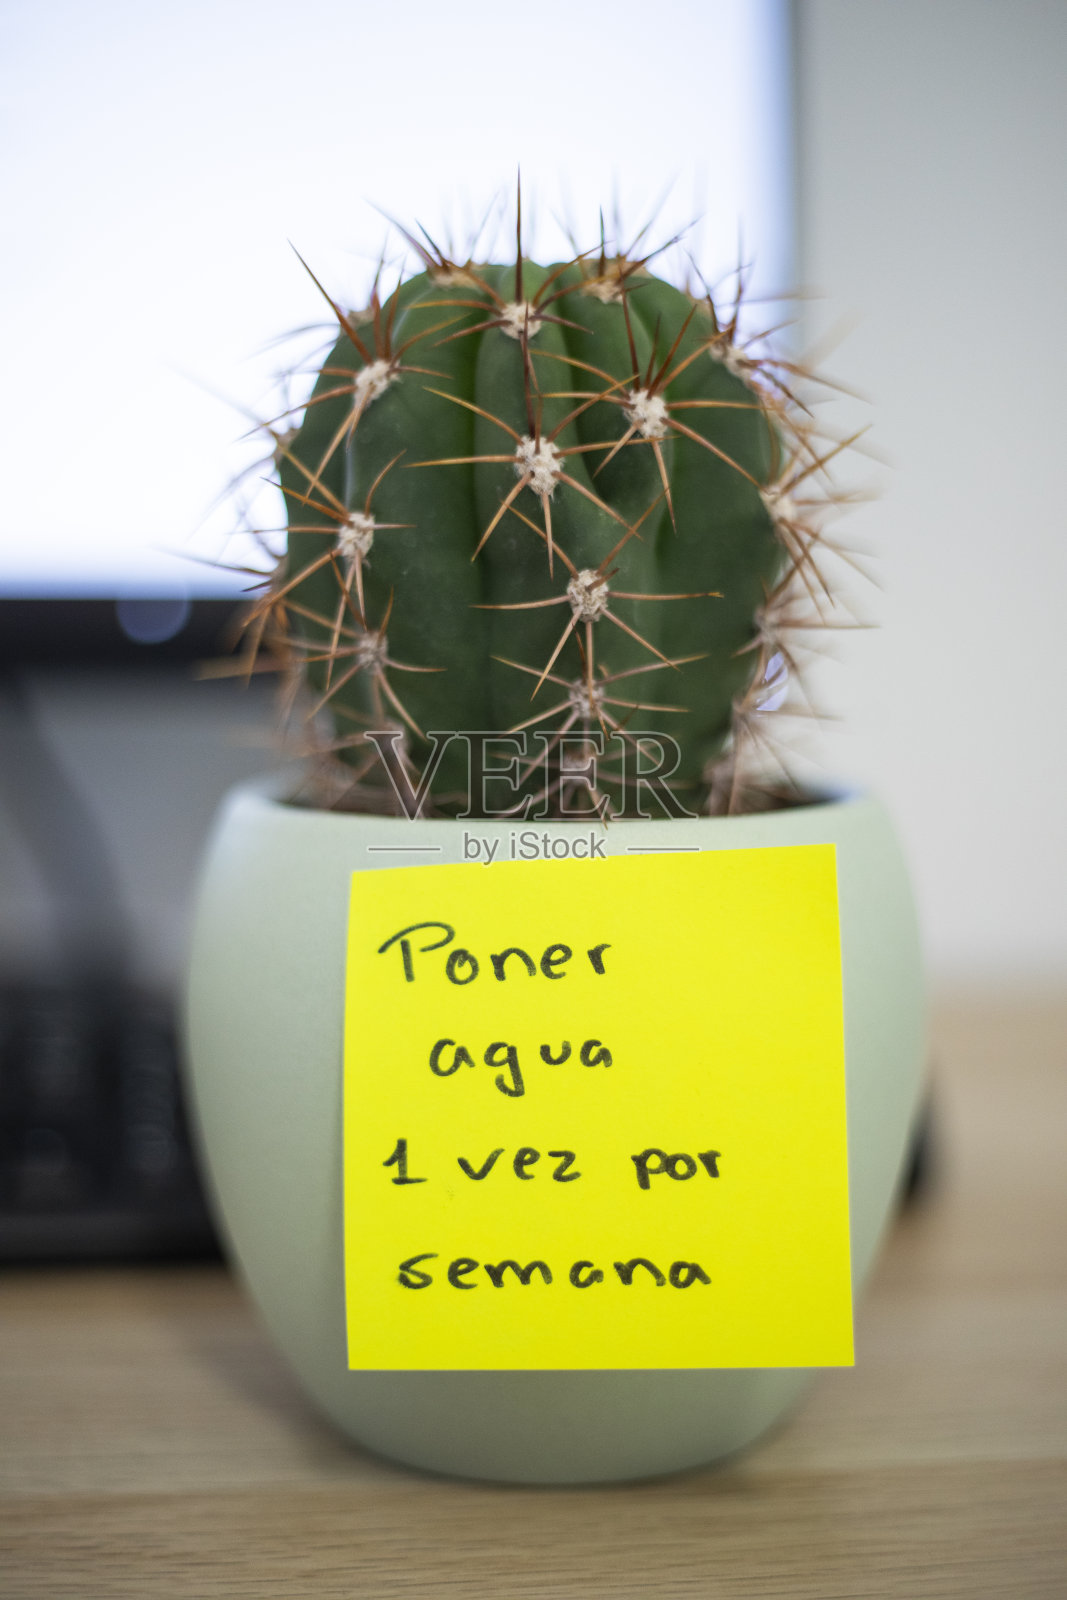 VEER
by iStock
Poner
agua
1 vez por
semana